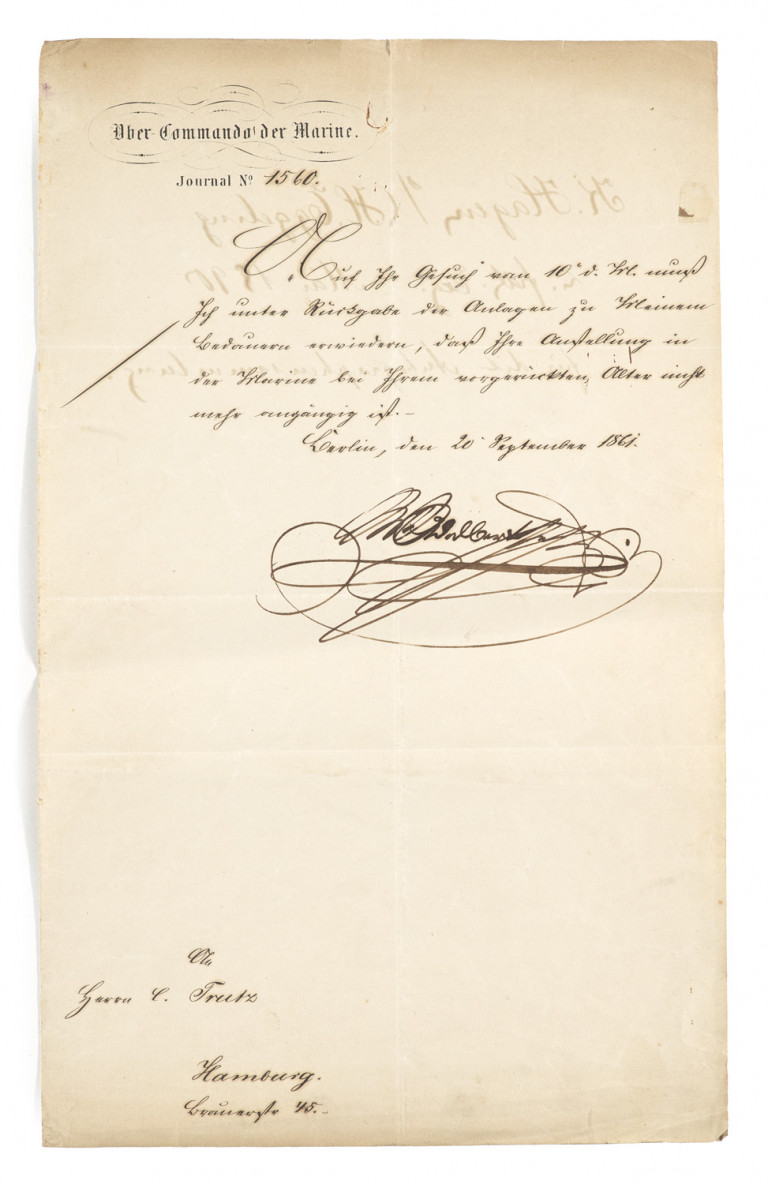 Ober-Commando der Marine.
Journal No 1560.
Auf Ihr Gesuch vom 10t d. M. muß
Ich unter Rückgabe der Anlagen zu Meinem
Bedauern erwiedern, daß Ihre Anstellung in
der Marine bei Ihrem vorgerückten Alter nicht
mehr angängig ist.-
Berlin, den 20t September 1861.
Adalbert
An
Herrn C. Trutz
Hamburg.
Brauerstr 45.-